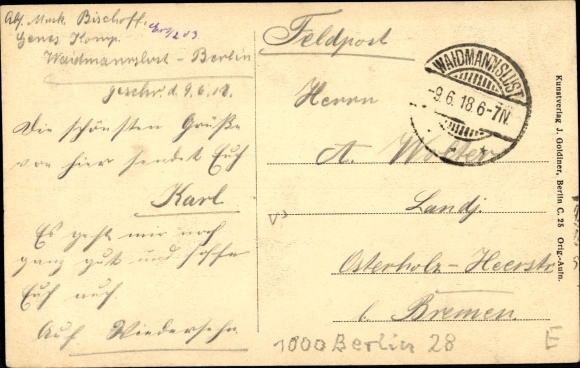 Abs. Musk. Bischoff.
Genes Komp.
Waidmannslust - Berlin
geschr. d. 9.6.18.
Die schönsten Grüße
von hier sendet Euch
Karl
Es geht mir noch
ganz gut und hoffe
Euch auch.
Auf Wiedersehn
Feldpost
WAIDMANNSLUST
-9.6.18.6-7N.
Herrn
A. Wolters
Landj.
Osterholz-Heerstr
b. Bremen.
1000 Berlin 28
Kunstverlag J. Goldiner, Berlin C. 25 Orig.-Aufn.